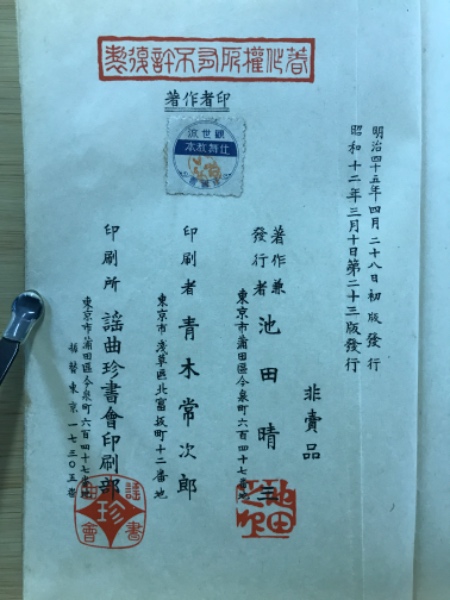 著作權所有不許複製
著作者印
觀世流
仕舞教本
明治四十五年四月二十八日初版發行
昭和十二年三月十日第二十三版發行
非賣品
著作兼發行者 池田晴三
東京市蒲田區今泉町六百四十七番地
印刷者 青木常次郎
東京市淺草區北富坂町十二番地
印刷所 謡曲珍書會印刷部
東京市蒲田區今泉町六百四十七番地
振替東京一七三〇五番
謡曲珍書會